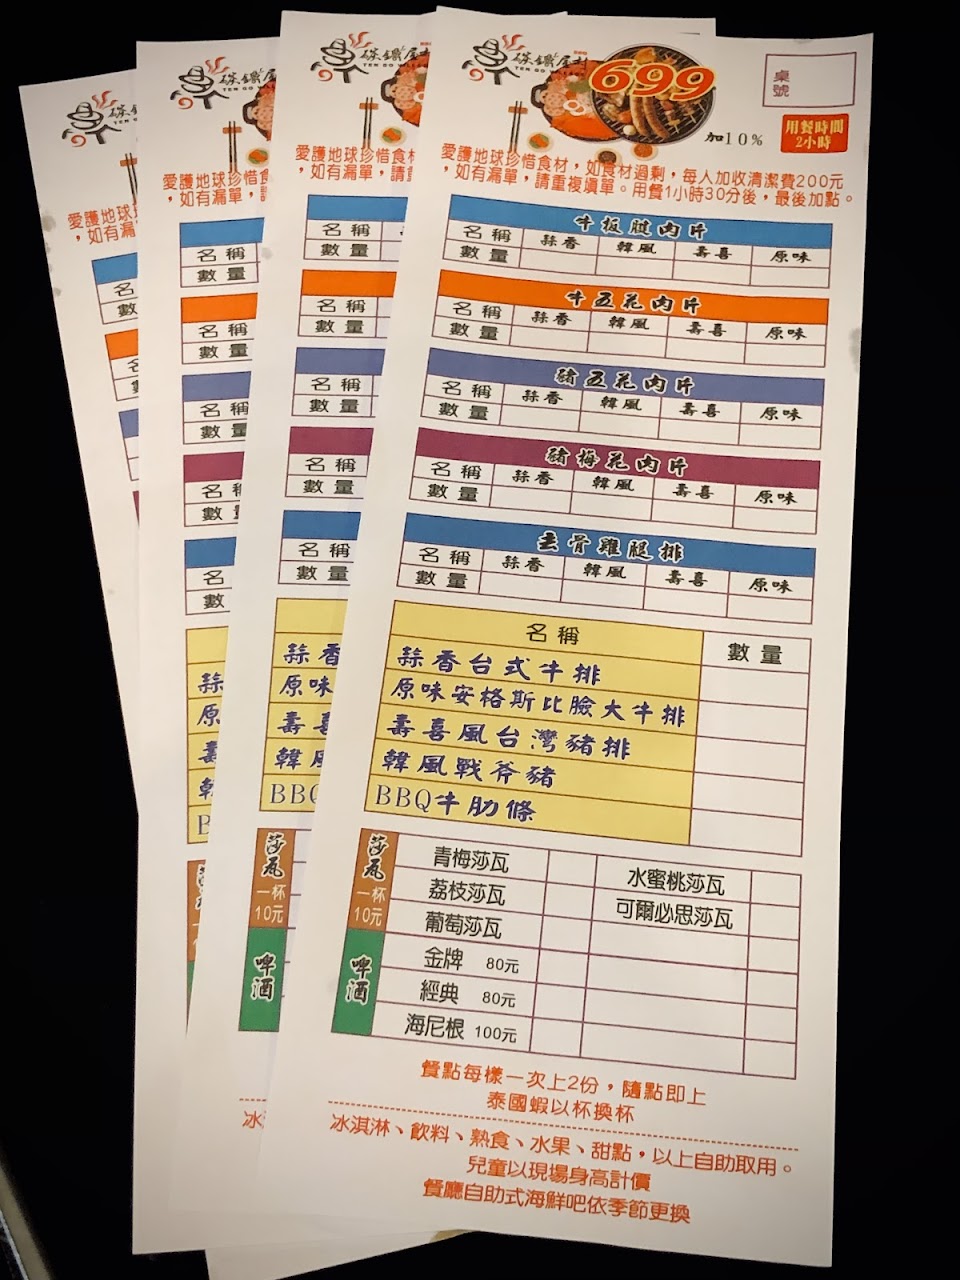 碳鑽屋村
699
桌號
加10%
用餐時間
2小時
愛護地球珍惜食材，如食材過剩，每人加收清潔費200元
，如有漏單，請重複填單。用餐1小時30分後，最後加點。
牛板腱肉片
名稱 蒜香 韓風 壽喜 原味
數量
牛五花肉片
名稱 蒜香 韓風 壽喜 原味
數量
豬五花肉片
名稱 蒜香 韓風 壽喜 原味
數量
豬梅花肉片
名稱 蒜香 韓風 壽喜 原味
數量
去骨雞腿排
名稱 蒜香 韓風 壽喜 原味
數量
名稱 數量
蒜香台式牛排
原味安格斯比臉大牛排
壽喜風台灣豬排
韓風戰斧豬
BBQ牛肋條
莎瓦
一杯
10元
青梅莎瓦 水蜜桃莎瓦
荔枝莎瓦 可爾必思莎瓦
葡萄莎瓦
啤酒
金牌 80元
經典 80元
海尼根 100元
餐點每樣一次上2份，隨點即上
泰國蝦以杯換杯
冰淇淋、飲料、熟食、水果、甜點，以上自助取用。
兒童以現場身高計價
餐廳自助式海鮮吧依季節更換